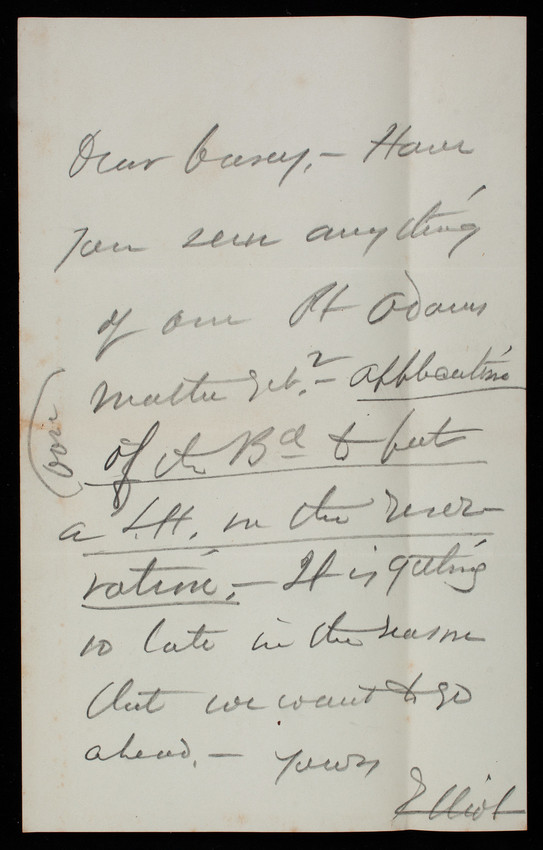 Dear Casey, – Have
you seen anything
of our Pt Adams
matter yet? – application
of the Bd to put
a L.H. in the reser-
vation, – It is getting
so late in the season
that we want to go
ahead. – Yours
Elliot